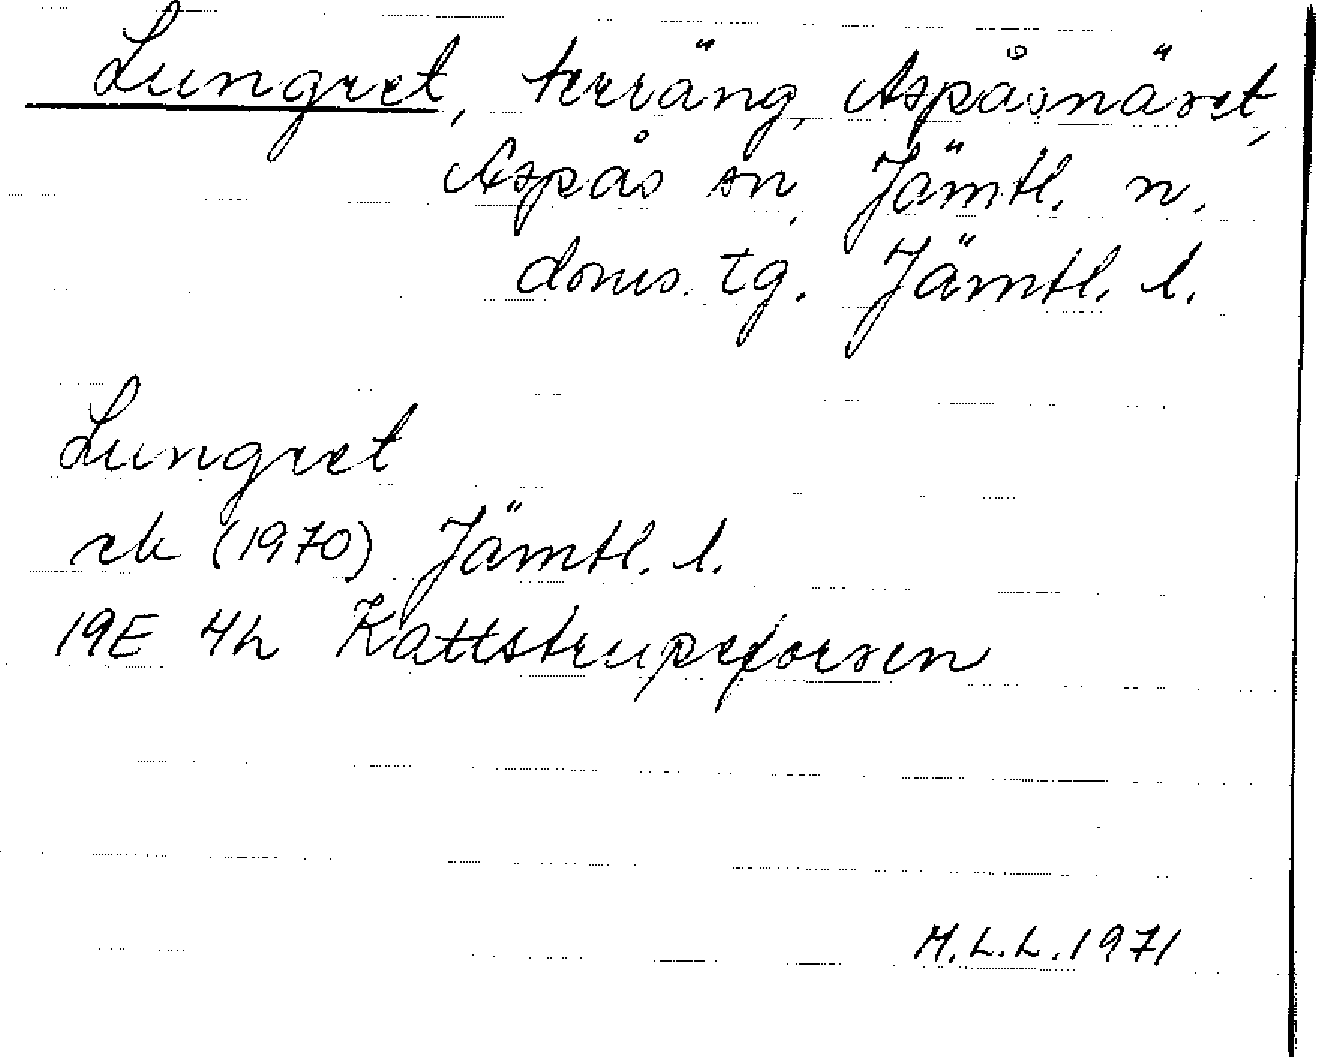 Lungret, terräng, Aspåsnäset,
Aspås sn, Jämtl. n.
doms. tg. Jämtl. l.
Lungret
ek (1970) Jämtl. l.
19E 4h Kattstrupeforsen
M.L.L. 1971